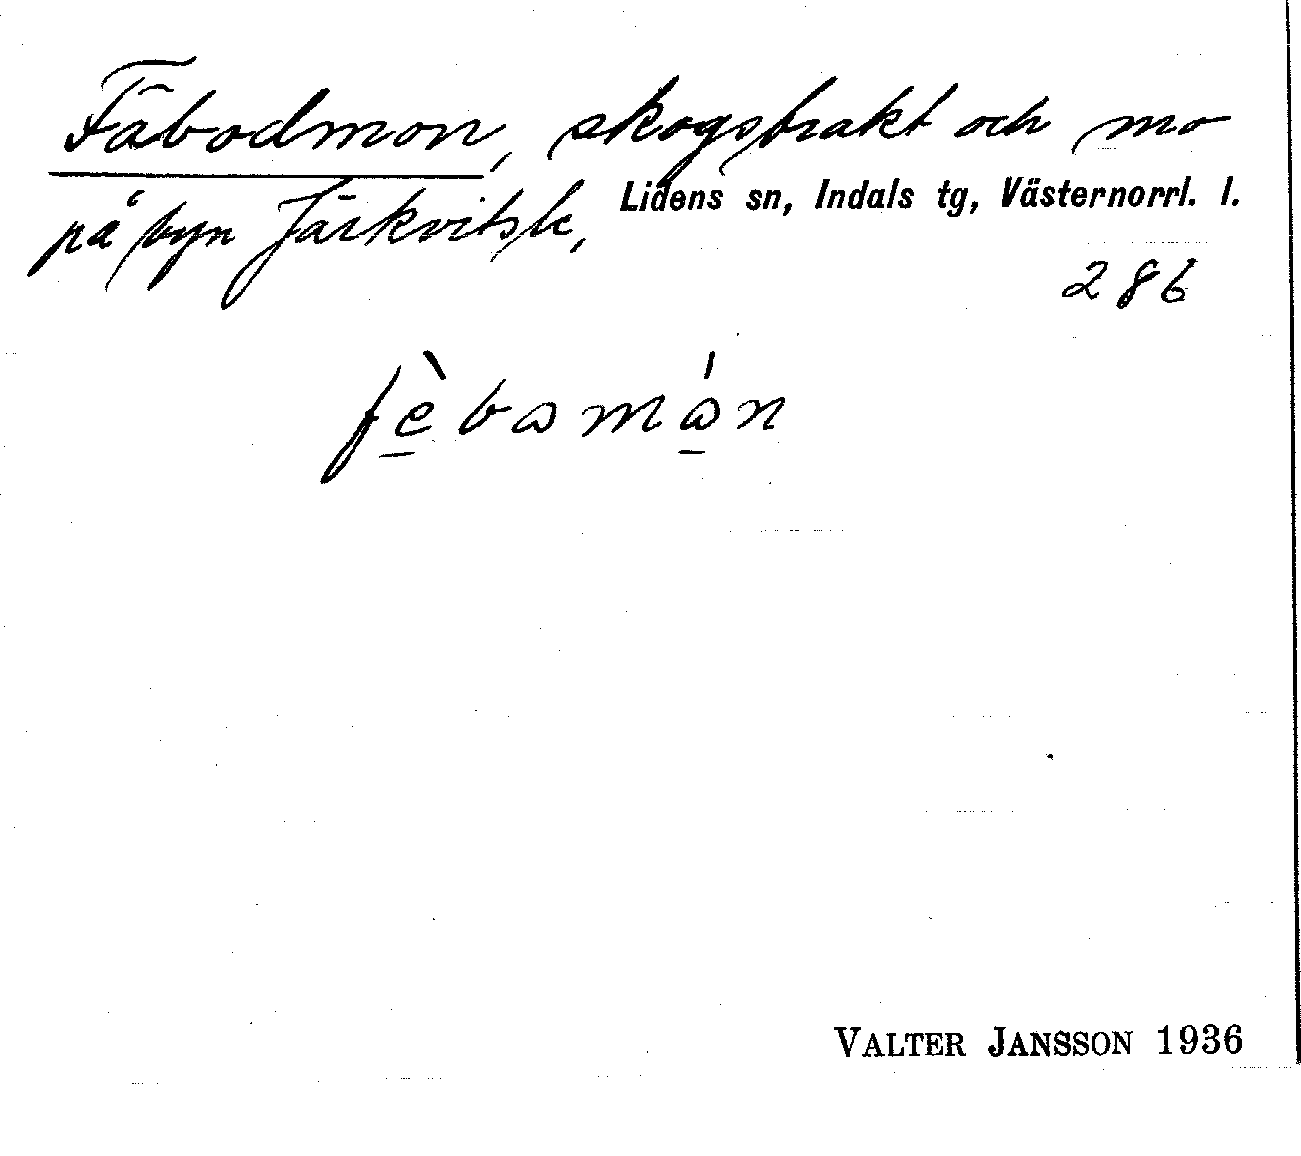 Fäbodmon, skogstrakt och mo
på byn Järkvitsle, Lidens sn, Indals tg, Västernorrl. l.
286
fèbωmώn
VALTER JANSSON 1936